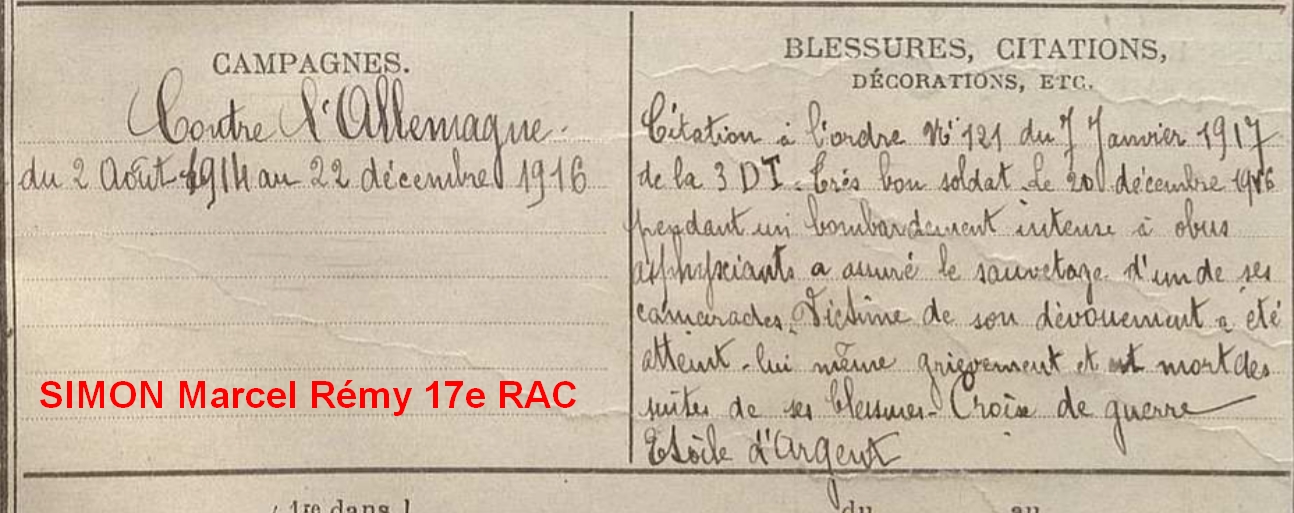 CAMPAGNES.
Contre l'Allemagne.
du 2 Août 1914 au 22 décembre 1916
SIMON Marcel Rémy 17e RAC
BLESSURES, CITATIONS,
DÉCORATIONS, ETC.
Citation à l'ordre N° 121 du 7 Janvier 1917
de la 3 DI. Très bon soldat. Le 20 décembre 1916
pendant un bombardement intense à obus
asphyxiants a assuré le sauvetage d'un de ses
camarades. Victime de son dévouement a été
atteint lui même grièvement et est mort des
suites de ses blessures - Croix de guerre
Etoile d'Argent
1re dans
du au